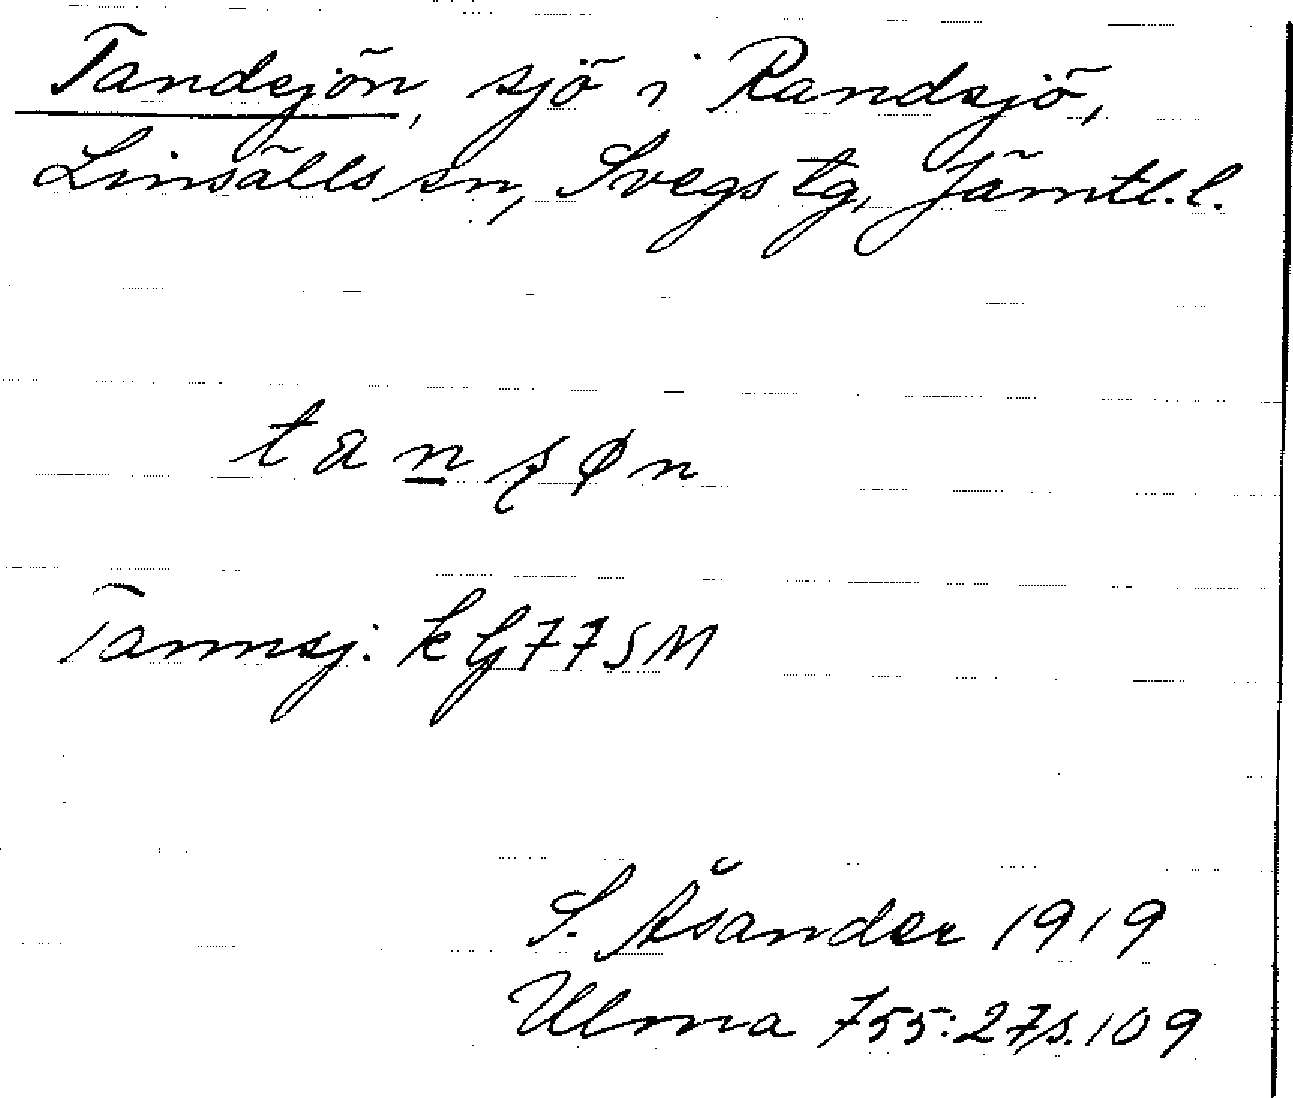 Tandsjön, sjö i Randsjö,
Linsälls sn, Svegs tg, Jämtl.l.
tanʂøn
Tannsj: k G77SM
S. Åsander 1919
Ulma 755:27s.109